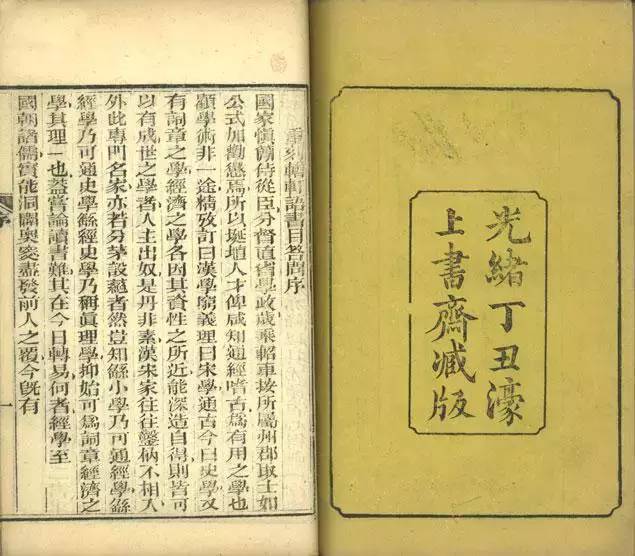 光緒丁丑濠
上書齋臧版
重刻輶軒語書目答問序
國家慎簡侍從臣分督直省學政歲乘軺車按所屬州郡取士如
公式加勸懲焉所以埏埴人才俾咸知通經嗜古爲有用之學也
顧學術非一途精攷訂曰漢學窮義理曰宋學通古今曰史學又
有詞章之學經濟之學各因其資性之所近能深造自得則皆可
以有成世之學者人主出奴是丹非素漢宋家往往鑿枘不相入
外此專門名家亦若分茅設蕝者然豈知繇小學乃可通經學繇
經學乃可通史學繇經史學乃稱眞理學抑始可爲詞章經濟之
學其理一也蓋嘗論讀書難其在今日轉易何者經學至
國朝諸儒實能洞闢奧窔盡發前人之覆今旣有
序
一